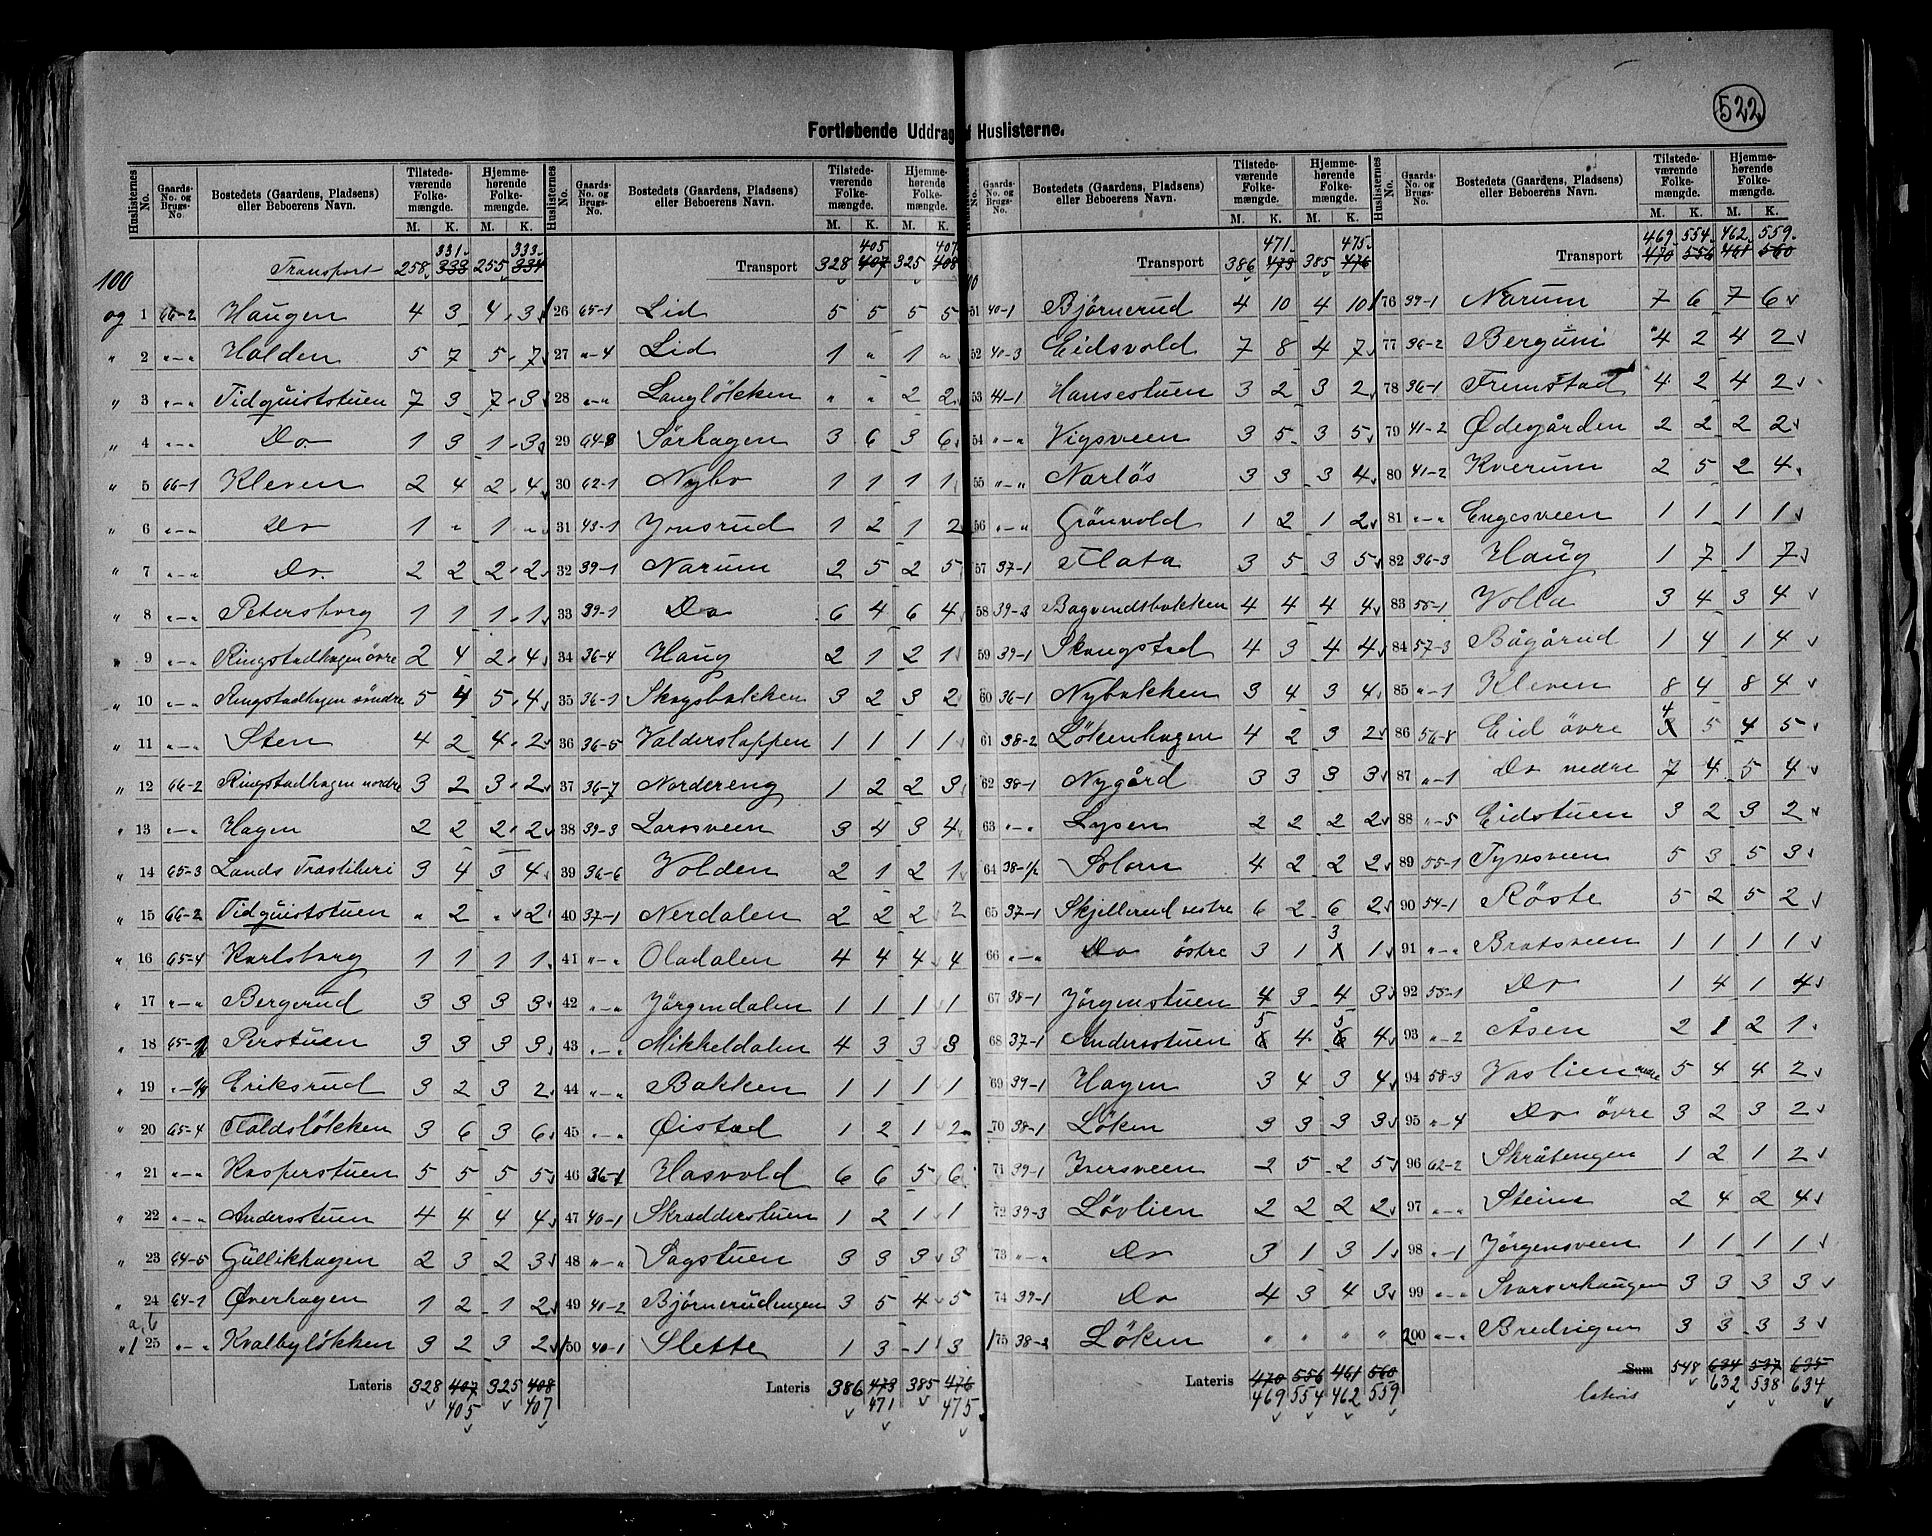 522
Fortløbende Uddrag af Huslisterne.
Huslisternes No. | Gaards-No. og Brugs-No. | Bostedets (Gaardens, Pladsens) eller Beboerens Navn. | Tilstedeværende Folkemængde. M. K. | Hjemmehørende Folkemængde. M. K.
100 Transport 258 331 333 255 333 334
og 1 66-2 Haugen 4 3 4 3
" 2 "-" Holden 5 7 5 7
" 3 "-" Tidquiststuen 7 3 7 3
" 4 "-" Do 1 3 1 3
" 5 66-1 Kleven 2 4 2 4
" 6 "-" Do 1 " 1 "
" 7 "-" Do. 2 2 2 2
" 8 "-" Petersborg 1 1 1 1
" 9 "-" Ringstadhagen øvre 2 4 2 4
" 10 "-" Ringstadhagen søndre 5 4 5 4
" 11 "-" Sten 4 2 4 2
" 12 66-2 Ringstadhagen nordre 3 2 3 2
" 13 "-" Hagen 2 2 2 2
" 14 65-3 Lands Træsliberi 3 4 3 4
" 15 66-2 Tidquiststuen " 2 " 2
" 16 65-4 Karlsborg 1 1 1 1
" 17 "-" Bergerud 3 3 3 3
" 18 Perstuen 3 3 3 3
" 19 Eriksrud 3 2 3 2
" 20 65-4 Foldsløkken 3 6 3 6
" 21 "-" Kasperstuen 5 5 5 5
" 22 "-" Andersstuen 4 4 4 4
" 23 64-5 Gullikhagen 2 3 2 3
" 24 64-1 Øverhagen 1 2 1 2
a, b
"1 25 "-" Kvalbyløkken 3 2 3 2
Lateris 328 407 325 408
405 407
Huslisternes No. | Gaards-No. og Brugs-No. | Bostedets (Gaardens, Pladsens) eller Beboerens Navn. | Tilstedeværende Folkemængde. M. K. | Hjemmehørende Folkemængde. M. K.
Transport 328 405 407 325 407 408
26 65-1 Lid 5 5 5 5
27 "-4 Lid 1 " 1 "
28 "-" Langløkken " " 2 2
29 64-8 Sørhagen 3 6 3 6
30 62-1 Nybo 1 1 1 1
31 43-1 Jonsrud 1 2 1 2
32 39-1 Narum 2 5 2 5
33 39-1 Do 6 4 6 4
34 36-4 Haug 2 1 2 1
35 36-1 Skogsbakken 3 2 3 2
36 36-5 Valderslappen 1 1 1 1
37 36-7 Nordereng 1 2 2 3
38 39-3 Larsveen 3 4 3 4
39 36-6 Volden 2 1 2 1
40 37-1 Nerdalen 2 2 2 2
41 "-" Oladalen 4 4 4 4
42 "-" Jørgendalen 1 1 1 1
43 "-" Mikkeldalen 4 3 3 3
44 "-" Bakken 1 1 1 1
45 "-" Øistad 1 2 1 2
46 36-1 Hasvold 6 6 5 6
47 40-1 Skrædderstuen 1 2 1 1
48 "-" Sagstuen 3 3 3 3
49 40-2 Bjørnerudengen 3 5 4 5
50 40-1 Slette 1 3 1 3
Lateris 386 473 385 476
471 475
Huslisternes No. | Gaards-No. og Brugs-No. | Bostedets (Gaardens, Pladsens) eller Beboerens Navn. | Tilstedeværende Folkemængde. M. K. | Hjemmehørende Folkemængde. M. K.
Transport 386 471 473 385 475 476
51 40-1 Bjørnerud 4 10 4 10
52 40-3 Eidsvold 7 8 4 7
53 41-1 Hansestuen 3 2 3 2
54 "-" Vigsveen 3 5 3 5
55 "-" Narløs 3 3 3 4
56 "-" Grønvold 1 2 1 2
57 37-1 Flata 3 5 3 5
58 39-3 Bagvendsbakken 4 4 4 4
59 39-1 Skaugstad 4 3 4 4
60 36-1 Nybakken 3 4 3 4
61 38-2 Løkenhagen 4 2 3 2
62 38-1 Nygård 3 3 3 3
63 "-" Lysen 2 2 2 2
64 38-1/2 Solem 4 2 2 2
65 37-1 Skjellerud vestre 6 2 6 2
66 "-" Do østre 3 1 3 1
67 38-1 Jørgenstuen 4 3 4 3
68 37-1 Andersstuen 5 6 4 5 6 4
69 39-1 Hagen 3 4 3 4
70 38-1 Løken 3 3 3 3
71 39-1 Iversveen 2 5 2 5
72 39-3 Løvlien 2 2 2 2
73 "-" Do 3 1 3 1
74 39-1 Do 4 3 4 3
75 38-2 Løken " " " "
Lateris 470 556 461 560
469 554 462 559
Huslisternes No. | Gaards-No. og Brugs-No. | Bostedets (Gaardens, Pladsens) eller Beboerens Navn. | Tilstedeværende Folkemængde. M. K. | Hjemmehørende Folkemængde. M. K.
Transport 469 470 554 556 462 461 559 560
76 39-1 Narum 7 6 7 6
77 36-2 Bergum 4 2 4 2
78 36-1 Fremstad 4 2 4 2
79 41-2 Ødegården 2 2 2 2
80 41-2 Kverum 2 5 2 4
81 "-" Engesveen 1 1 1 1
82 36-3 Haug 1 7 1 7
83 58-1 Volla 3 4 3 4
84 57-3 Bågårud 1 4 1 4
85 "-1 Kleven 8 4 8 4
86 56-8 Eid øvre 4 3 5 4 5
87 "-1 Do nedre 7 4 5 4
88 "-5 Eidstuen 3 2 3 2
89 55-1 Tyrsveen 5 3 5 3
90 54-1 Røste 5 2 5 2
91 "-" Bratsveen 1 1 1 1
92 58-1 Do 1 4 1 4
93 "-2 Åsen 2 1 2 1
94 58-3 Vaslien nedre 5 4 4 2
95 "-4 Do øvre 3 2 3 2
96 62-2 Skråtengen 1 2 1 2
97 "-" Steine 2 4 2 4
98 "-1 Jørgensveen 1 1 1 1
99 "-" Svarverhaugen 3 3 3 3
200 "-" Bredvigen 3 3 3 3
Sum 548 634 537 635
Lateris 632 538 634